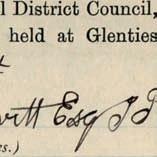 l District Council,
held at Glenties
Esq J P
s.)